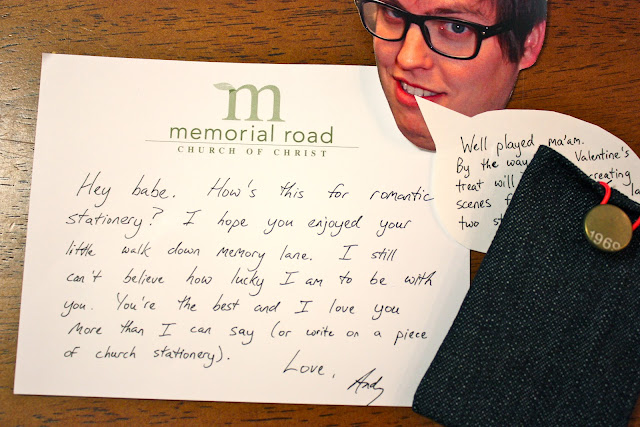 m
memorial road
CHURCH OF CHRIST
Hey babe. How's this for romantic
stationery? I hope you enjoyed your
little walk down memory lane. I still
can't believe how lucky I am to be with
you. You're the best and I love you
more than I can say (or write on a piece
of church stationery).
Love,
Andy
Well played ma'am.
By the way Valentine's
treat will creating
scenes
two
1969